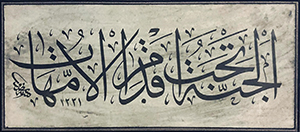 الجنة تحت اقدام الامهات ١٣٢١